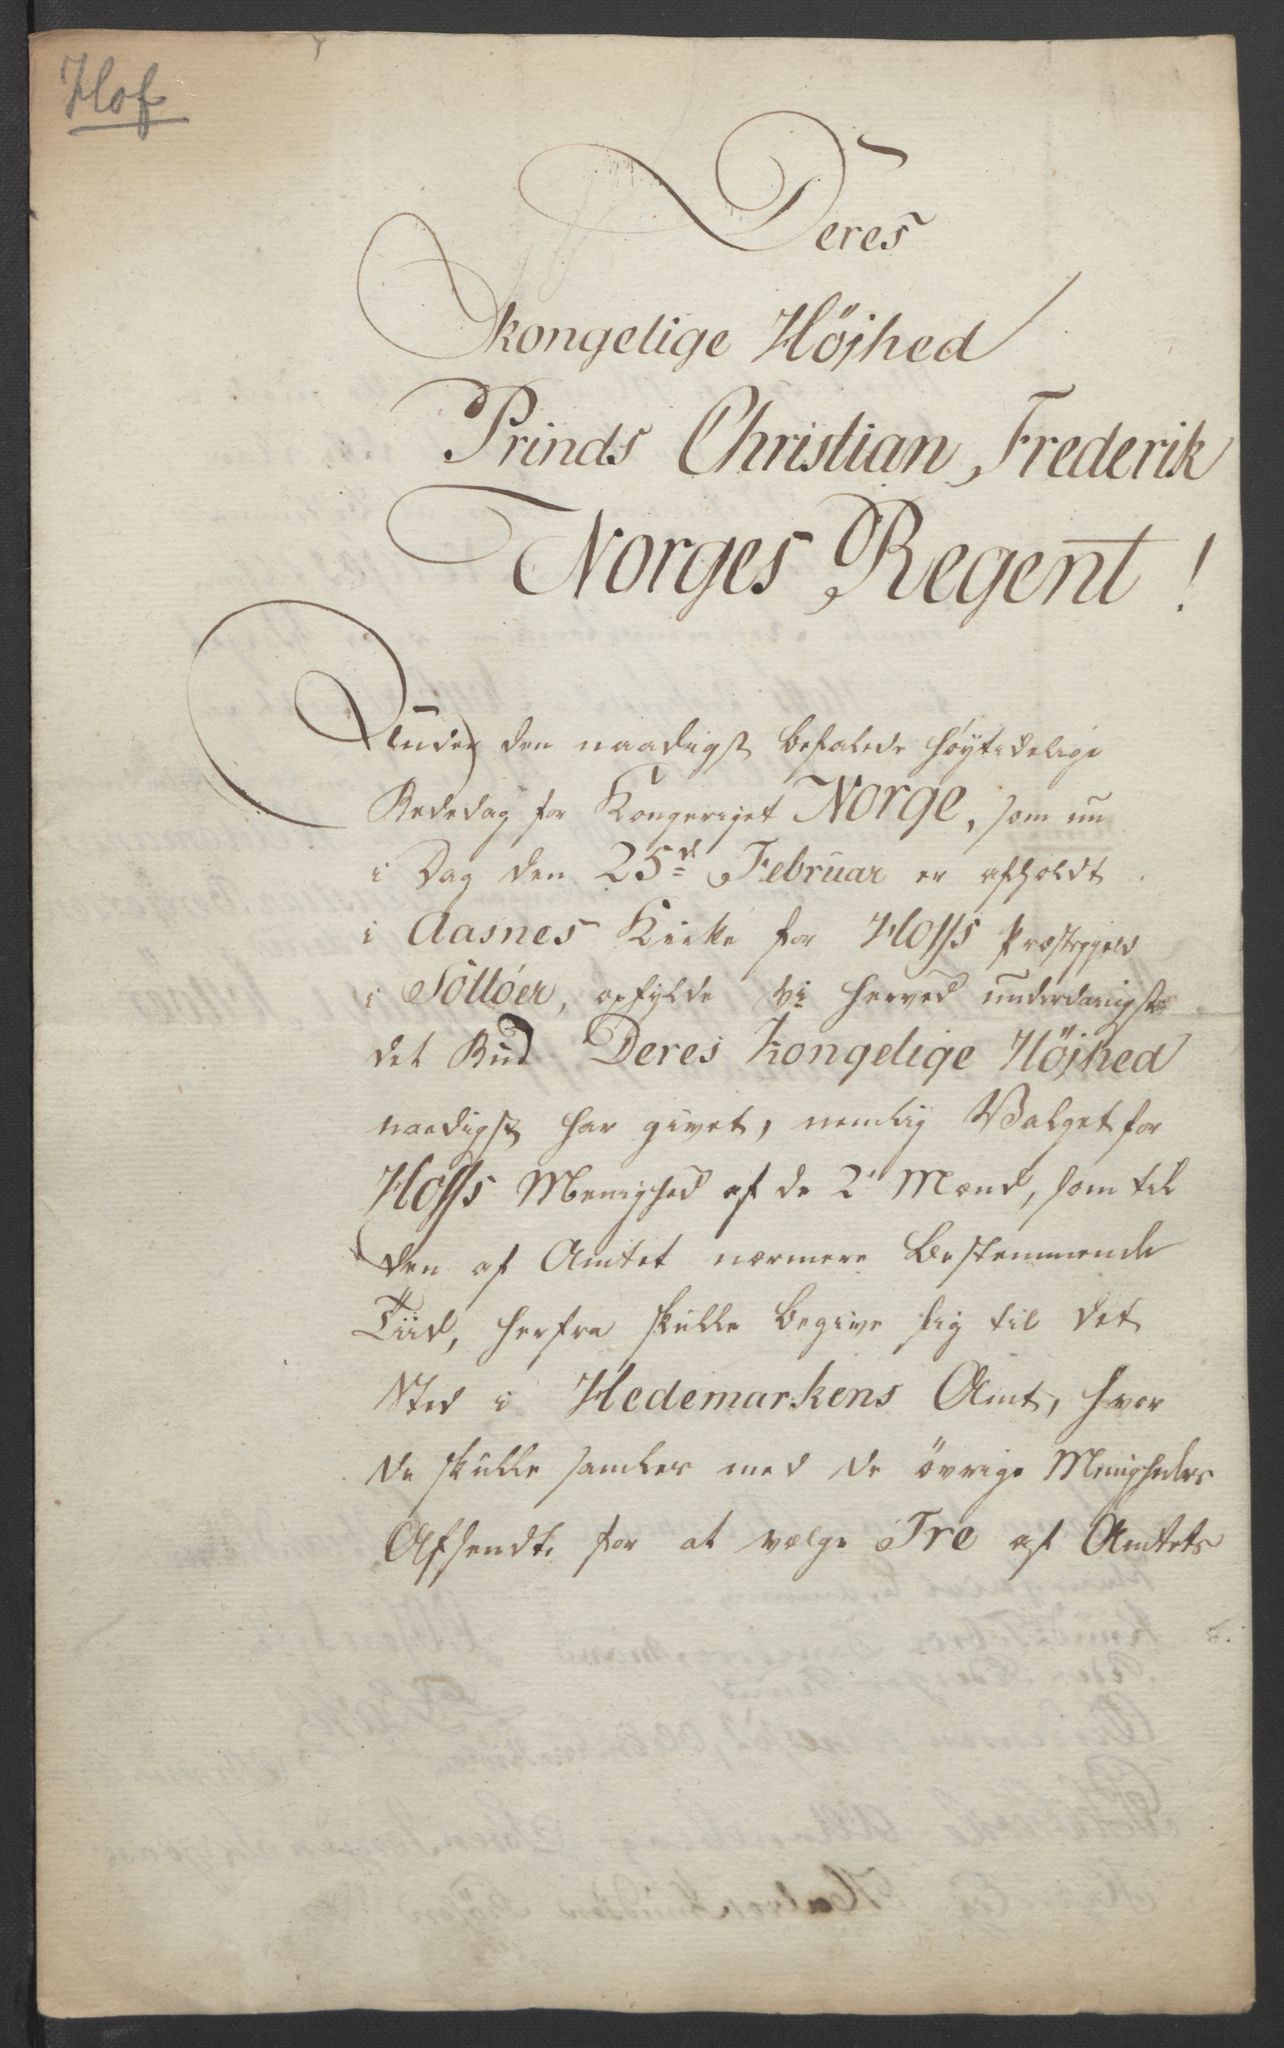 Hof
Deres
kongelige Höjhed
Prinds Christian Frederik
Norges Regent!
Under den naadigst befalede höytidelige
Bededag for Kongeriget Norge, som nu
i Dag den 25de Februar er afholdt
i Aasnes Kirke for Hoffs Præstegjeld
i Solløer, opfylde vi herved underdanigst
det Bud Deres Kongelige Höjhed
naadigst har givet, nemlig Valget for
Hoffs Menighed af de 2de Mænd, som til
den af Amtet nærmere bestemmende
Tiid, herfra skulle begive sig til det
Sted i Hedemarkens Amt, hvor
de skulle samles med de övrige Menigheders
Afsendte for at vælge Tre af Amtets